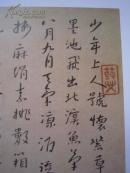 少年上人號懷素草
墨池飛出北溟魚筆
八月九月天氣涼酒徒
麻絹素排數箱